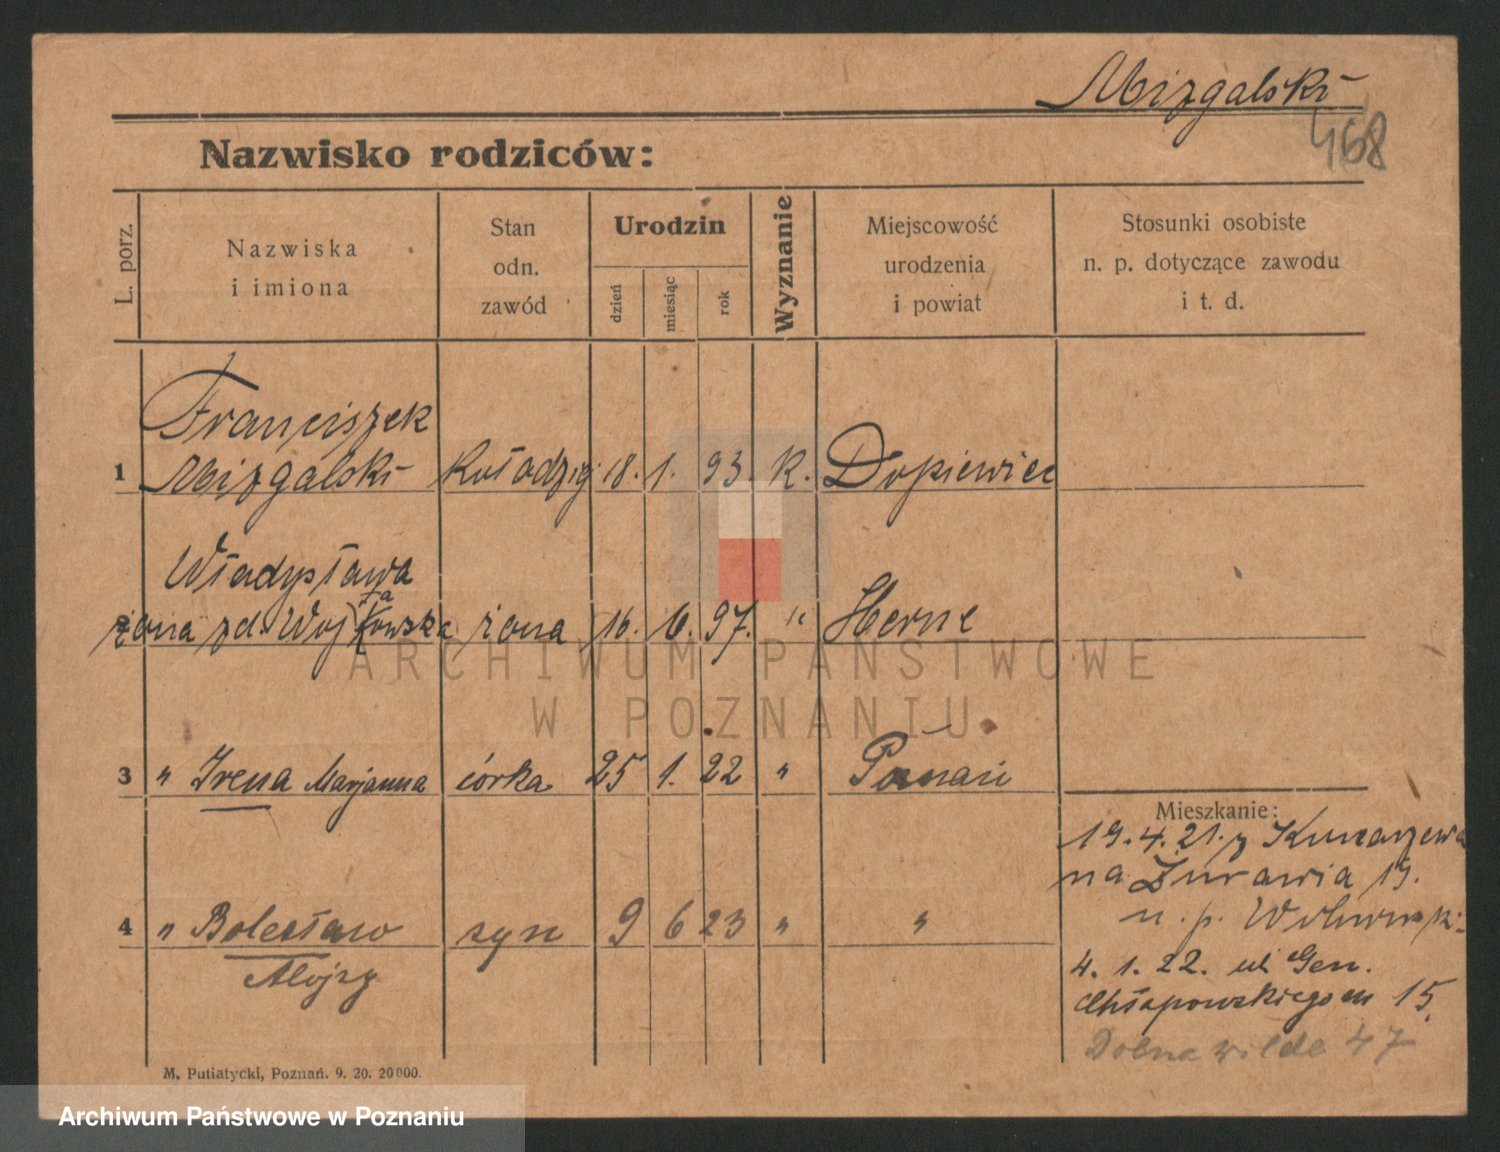 Mizgalski
468
Nazwisko rodziców:
L. porz.
Nazwiska
i imiona
Stan
odn.
zawód
Urodzin
dzień
miesiąc
rok
Wyznanie
Miejscowość
urodzenia
i powiat
Stosunki osobiste
n. p. dotyczące zawodu
i t. d.
Franciszek
1 Mizgalski kołodziej 18. 1. 93. K. Dopiewiec
Władysława
żona zd. żona 16. 6. 97. " Herne
ARCHIWUM PAŃSTWOWE
W POZNANIU
3 " Irena Marjanna córka 25 1. 22 " Poznań
4 " Bolesław syn 9 6 23 " "
Alojzy
Mieszkanie:
19. 4. 21. z
na Żurawia 19.
u. p.
4. 1. 22. ul Gen.
Chłapowskiego 15.
Dolna wilda 47
M. Putiatycki, Poznań. 9. 20. 20000.
Archiwum Państwowe w Poznaniu